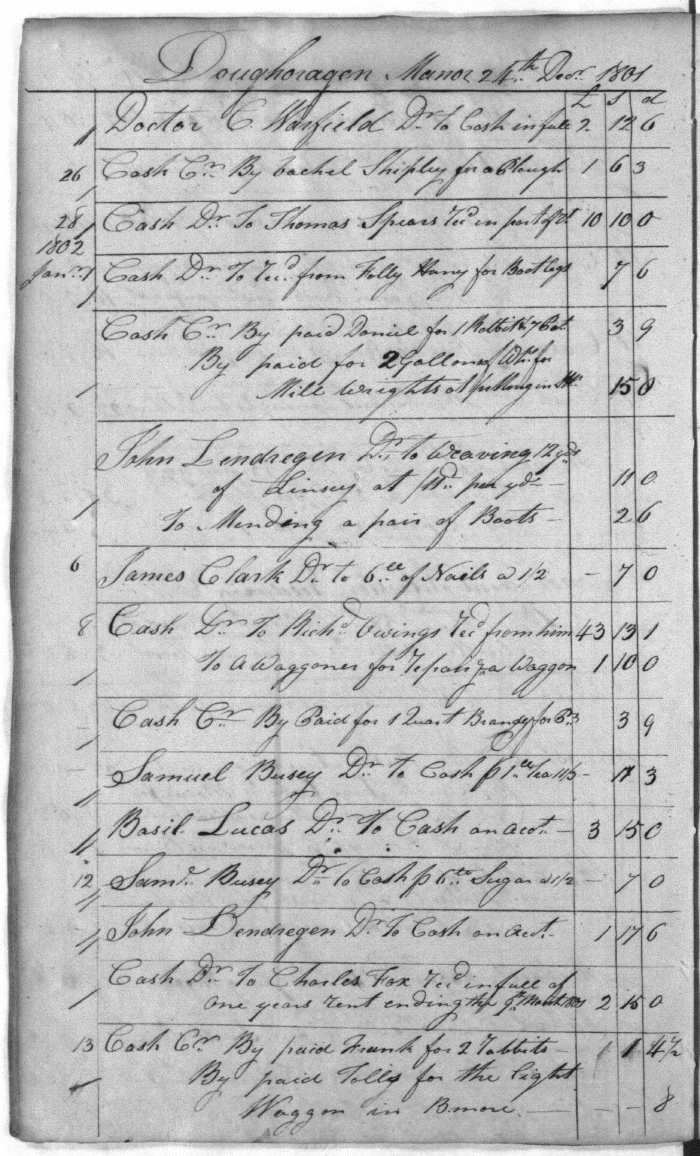 Doughoragen Manor 24th Decr. 1801
£ s d
Doctor C. Warfield Dr. To Cash in full 2 12 6
26 Cash Cr. By Rachel Shipley for a Plough 1 6 3
28 Cash Dr. To Thomas Spears Rec'd in part of 10 10 0
1802
Janr. 1 Cash Dr. To Rec'd from Folly Hany for Bootlegs 7 6
Cash Cr. By paid Daniel for 1 Rabbit & 3 9
By paid for 2 Gallons of for
Mill Wrights at 15 0
John Lendregen Dr. to Weaving 12 yds
of Linsey at per yd - 11 0
To Mending a pair of Boots - 2 6
6 James Clark Dr. to 6 of Nails a 1/2 - 7 0
8 Cash Dr. To Richd. Owings Rec'd from him 43 13 1
To A Waggoner for repairg. a Waggon 1 10 0
Cash Cr. By Paid for 1 Quart Brandy for 3 9
Samuel Busey Dr. to Cash p 1 Tea - 11 3
Basil Lucas Dr. To Cash on acct. - 3 15 0
12 Saml. Busey Dr. to Cash p 6 Sugar a 1/2 - 7 0
John Lendregen Dr. To Cash on acct. 1 17 6
Cash Dr. To Charles Fox Rec'd in full of
one years rent ending the 9th March 2 15 0
13 Cash Cr. By paid Frank for 2 Rabbits - 1 4 1/2
By paid Tolls for the light
Waggon in Bmore. - - - 8